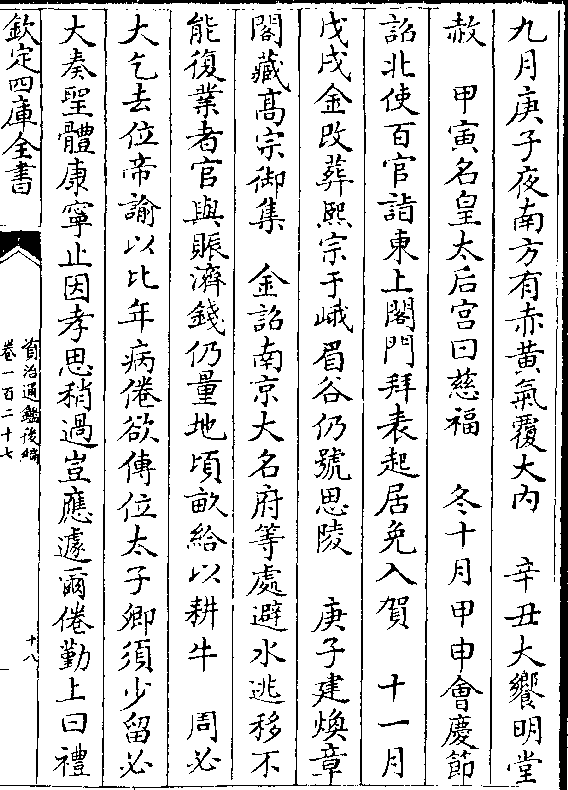 九月庚子夜南方有赤黄氣覆大内　辛丑大饗明堂
赦　甲寅名皇太后宫曰慈福　冬十月甲申會慶節
詔北使百官詣東上閤門拜表起居免入賀　十一月
戊戌金改葬熙宗于峨眉谷仍號思陵　庚子建煥章
閣藏髙宗御集　金詔南京大名府等處避水逃移不
能復業者官與賑濟錢仍量地頃畝給以耕牛　周必
大乞去位帝諭以比年病倦欲傳位太子卿須少留必
大奏聖體康寧止因孝思稍過豈應遽爾倦勤上曰禮
欽定四庫全書
資治通鑑後編
卷一百二十七
十八